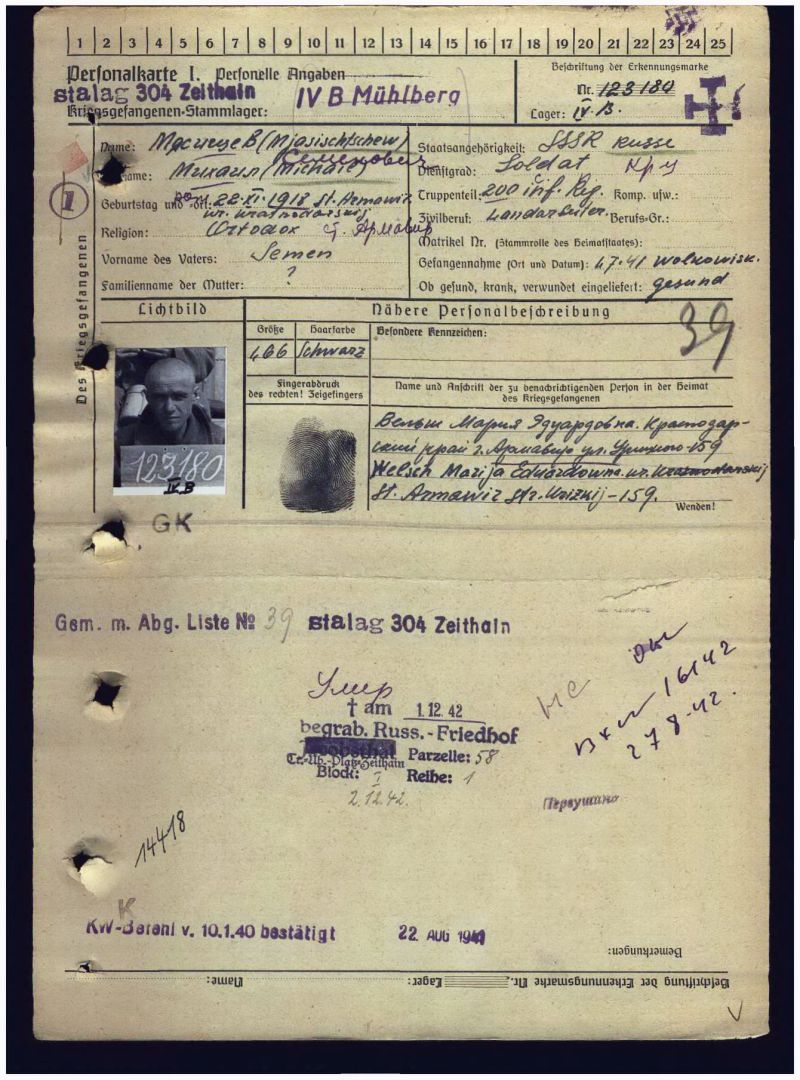 1 2 3 4 5 6 7 8 9 10 11 12 13 14 15 16 17 18 19 20 21 22 23 24 25
Personalkarte I. Personelle Angaben
Beschriftung der Erkennungsmarke
stalag 304 Zeithain
IV B Mühlberg
Nr. 123180
Kriegsgefangenen-Stammlager:
Lager: IV. B.
Des Kriegsgefangenen
1
Name: (Mjasischtschew)
Staatsangehörigkeit: SSSR russe
Семенович
Михаил (Michail)
Dienstgrad: Soldat
Geburtstag und -ort: 22.XI.1918 St. Armawir
Truppenteil: 200 inf. Rg. Komp. usw.:
kr. Krasnodarskij
Zivilberuf: Landarbeiter. Berufs-Gr.:
Religion: Ortodox г. Армавир
Matrikel Nr. (Stammrolle des Heimatstaates):
Vorname des Vaters: Semen
Gefangennahme (Ort und Datum): 4.7.41 Wolkowisk.
Familienname der Mutter: ?
Ob gesund, krank, verwundet eingeliefert: gesund
Lichtbild
Nähere Personalbeschreibung
39
Größe
Haarfarbe
Besondere Kennzeichen:
166
Schwarz
Fingerabdruck
des rechten! Zeigefingers
Name und Anschrift der zu benachrichtigenden Person in der Heimat
des Kriegsgefangenen
Вельш Мария Эдуардовна. Краснодар-
ский край г. Армавир ул. Урицкого-159
Welsch Marija Eduardowna. kr. Krasnodarskij
St. Armawir str. Urizkij-159.
Wenden!
123180
IV B
GK
Gem. m. Abg. Liste № 39 stalag 304 Zeithain
Умер
† am 1.12.42
begrab. Russ.-Friedhof
Tr.-Üb.-Platz-Zeithain
Parzelle: 58
Block: I
Reihe: 1
2.12.42.
16142
27 8-42.
14418
K
KW-Befehl v. 10.1.40 bestätigt
22. AUG 1941
Bemerkungen:
Beschriftung der Erkennungsmarke Nr.
Lager:
Name: